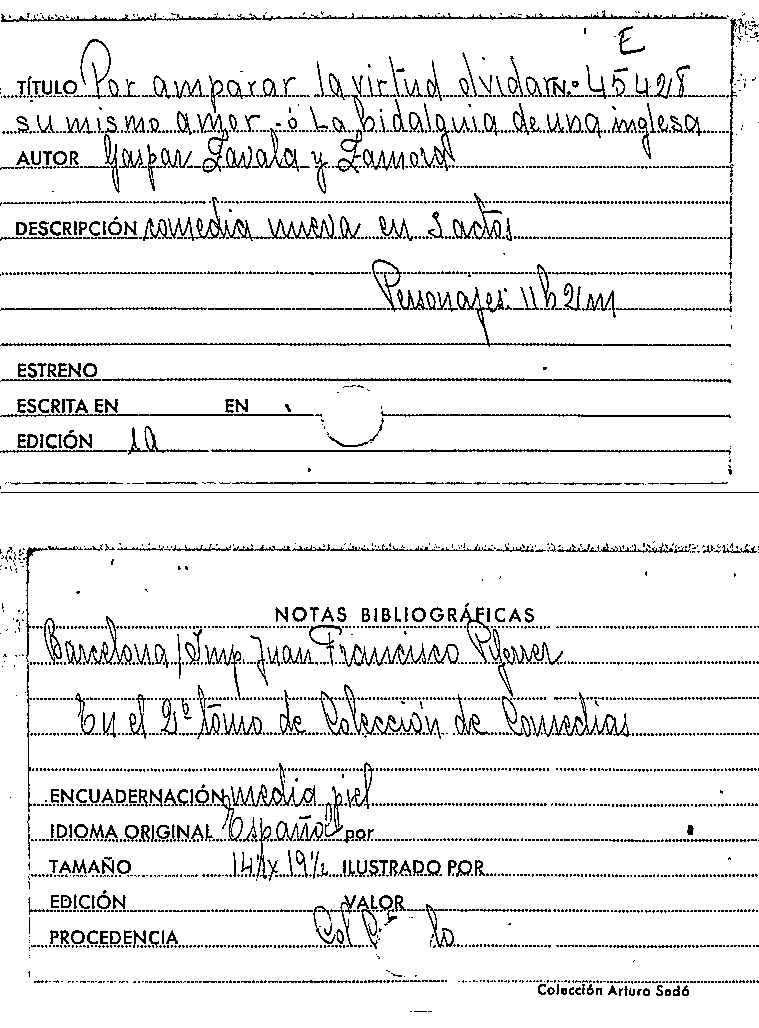 E
TÍTULO Por amparar la virtud olvidar N.º 45428
su mismo amor - ó La hidalguia de una inglesa
AUTOR Gaspar Zavala y Zamora
DESCRIPCIÓN comedia nueva en 3 actos
Personajes: 11h 2m
ESTRENO
ESCRITA EN EN
EDICIÓN 1a
NOTAS BIBLIOGRÁFICAS
Barcelona / Imp. Juan Francisco Piferrer
En el 2º tomo de Colección de Comedias
ENCUADERNACIÓN media piel
IDIOMA ORIGINAL Español por
TAMAÑO 14½ x 19½ ILUSTRADO POR
EDICIÓN VALOR
PROCEDENCIA Col
Colección Arturo Sedó